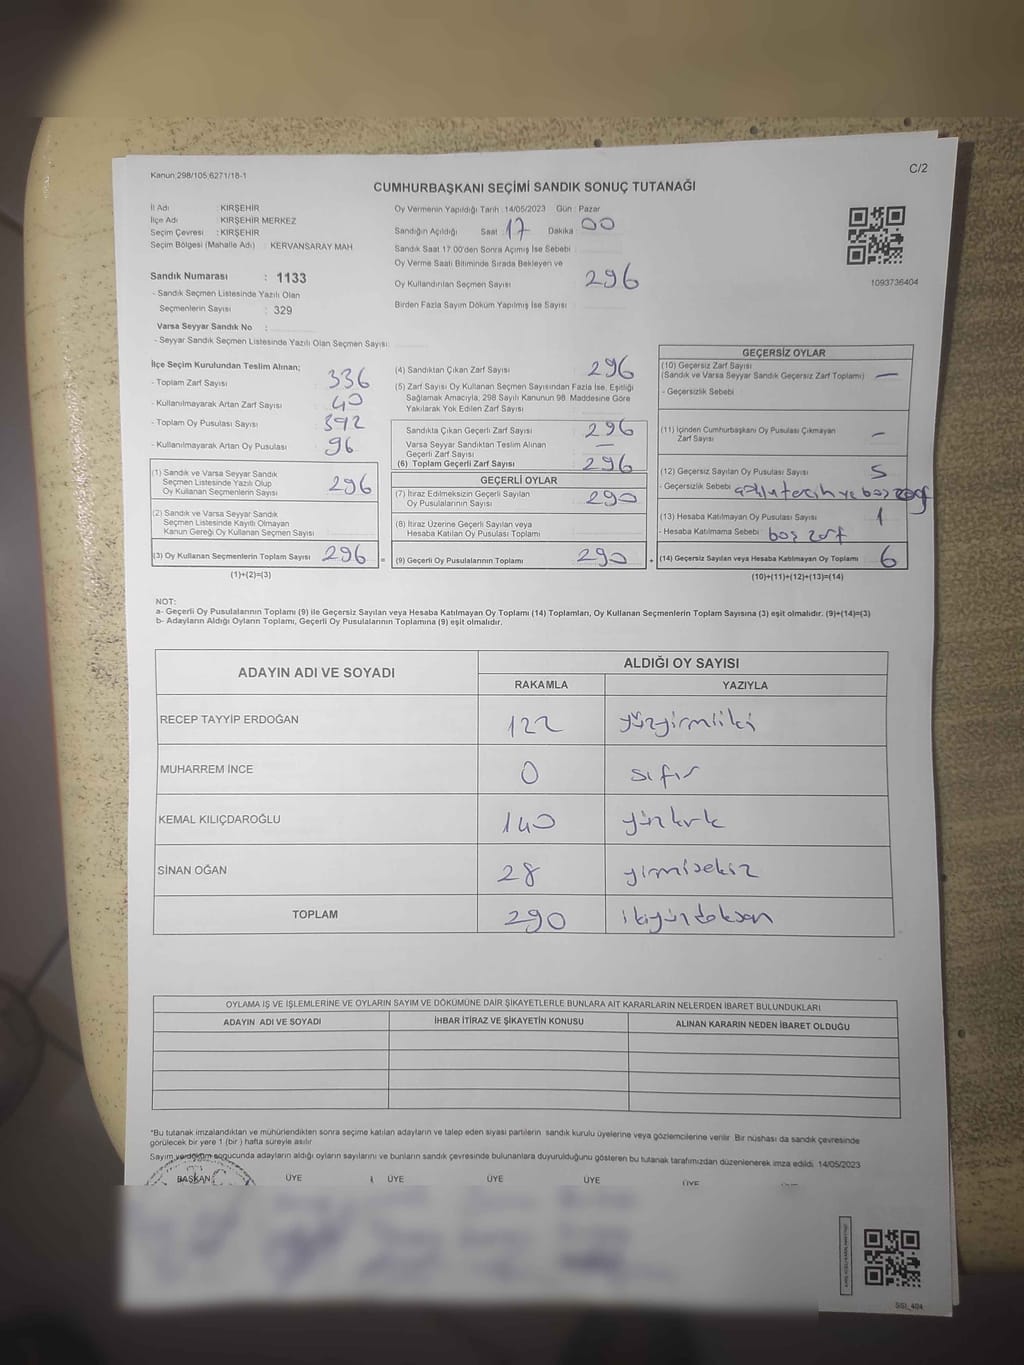 Kanun:298/105,6271/18-1
C/2
CUMHURBAŞKANI SEÇİMİ SANDIK SONUÇ TUTANAĞI
İl Adı : KIRŞEHİR
İlçe Adı : KIRŞEHİR MERKEZ
Seçim Çevresi : KIRŞEHİR
Seçim Bölgesi (Mahalle Adı) : KERVANSARAY MAH
Sandık Numarası : 1133
- Sandık Seçmen Listesinde Yazılı Olan
Seçmenlerin Sayısı : 329
Varsa Seyyar Sandık No :
- Seyyar Sandık Seçmen Listesinde Yazılı Olan Seçmen Sayısı:
Oy Vermenin Yapıldığı Tarih :14/05/2023 Gün : Pazar
Sandığın Açıldığı Saat : 17 Dakika 00
Sandık Saat 17:00'den Sonra Açımış İse Sebebi :
Oy Verme Saati Bitiminde Sırada Bekleyen ve
Oy Kullandırılan Seçmen Sayısı 296
Birden Fazla Sayım Döküm Yapılmış İse Sayısı :
1093736404
İlçe Seçim Kurulundan Teslim Alınan;
- Toplam Zarf Sayısı 336
- Kullanılmayarak Artan Zarf Sayısı 40
- Toplam Oy Pusulası Sayısı 392
- Kullanılmayarak Artan Oy Pusulası 96
(1) Sandık ve Varsa Seyyar Sandık
Seçmen Listesinde Yazılı Olup
Oy Kullanan Seçmenlerin Sayısı 296
(2) Sandık ve Varsa Seyyar Sandık
Seçmen Listesinde Kayıtlı Olmayan
Kanun Gereği Oy Kullanan Seçmen Sayısı
(3) Oy Kullanan Seçmenlerin Toplam Sayısı 296
(1)+(2)=(3)
(4) Sandıktan Çıkan Zarf Sayısı 296
(5) Zarf Sayısı Oy Kullanan Seçmen Sayısından Fazla İse, Eşitliği
Sağlamak Amacıyla, 298 Sayılı Kanunun 98. Maddesine Göre
Yakılarak Yok Edilen Zarf Sayısı
Sandıkta Çıkan Geçerli Zarf Sayısı 296
Varsa Seyyar Sandıktan Teslim Alınan
Geçerli Zarf Sayısı —
(6) Toplam Geçerli Zarf Sayısı 296
GEÇERLİ OYLAR
(7) İtiraz Edilmeksizin Geçerli Sayılan
Oy Pusulalarının Sayısı 290
(8) İtiraz Üzerine Geçerli Sayılan veya
Hesaba Katılan Oy Pusulası Toplamı
= (9) Geçerli Oy Pusulalarının Toplamı 290 +
GEÇERSİZ OYLAR
(10) Geçersiz Zarf Sayısı
(Sandık ve Varsa Seyyar Sandık Geçersiz Zarf Toplamı) —
- Geçersizlik Sebebi
(11) İçinden Cumhurbaşkanı Oy Pusulası Çıkmayan
Zarf Sayısı –
(12) Geçersiz Sayılan Oy Pusulası Sayısı 5
- Geçersizlik Sebebi ve boş
(13) Hesaba Katılmayan Oy Pusulası Sayısı 1
- Hesaba Katılmama Sebebi boş zarf
(14) Geçersiz Sayılan veya Hesaba Katılmayan Oy Toplamı 6
(10)+(11)+(12)+(13)=(14)
NOT:
a- Geçerli Oy Pusulalarının Toplamı (9) ile Geçersiz Sayılan veya Hesaba Katılmayan Oy Toplamı (14) Toplamları, Oy Kullanan Seçmenlerin Toplam Sayısına (3) eşit olmalıdır. (9)+(14)=(3)
b- Adayların Aldığı Oyların Toplamı, Geçerli Oy Pusulalarının Toplamına (9) eşit olmalıdır.
ADAYIN ADI VE SOYADI ALDIĞI OY SAYISI
RAKAMLA YAZIYLA
RECEP TAYYİP ERDOĞAN 122 yüzyirmiiki
MUHARREM İNCE 0 sıfır
KEMAL KILIÇDAROĞLU 140 yüzkırk
SİNAN OĞAN 28 yirmisekiz
TOPLAM 290 ikiyüzdoksan
OYLAMA İŞ VE İŞLEMLERİNE VE OYLARIN SAYIM VE DÖKÜMÜNE DAİR ŞİKAYETLERLE BUNLARA AİT KARARLARIN NELERDEN İBARET BULUNDUKLARI
ADAYIN ADI VE SOYADI İHBAR İTİRAZ VE ŞİKAYETİN KONUSU ALINAN KARARIN NEDEN İBARET OLDUĞU
*Bu tutanak imzalandıktan ve mühürlendikten sonra seçime katılan adayların ve talep eden siyasi partilerin sandık kurulu üyelerine veya gözlemcilerine verilir. Bir nüshası da sandık çevresinde
görülecek bir yere 1 (bir) hafta süreyle asılır.
Sayım ve döküm sonucunda adayların aldığı oyların sayılarını ve bunların sandık çevresinde bulunanlara duyurulduğunu gösteren bu tutanak tarafımızdan düzenlenerek imza edildi. 14/05/2023
BAŞKAN ÜYE ÜYE ÜYE ÜYE ÜYE
SSI_404